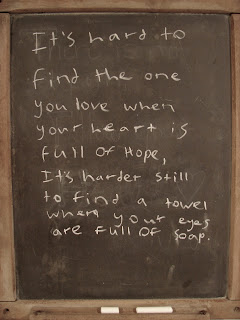 It's hard to
find the one
you love when
your heart is
full of Hope,
It's harder still
to find a towel
where your eyes
are full of soap.